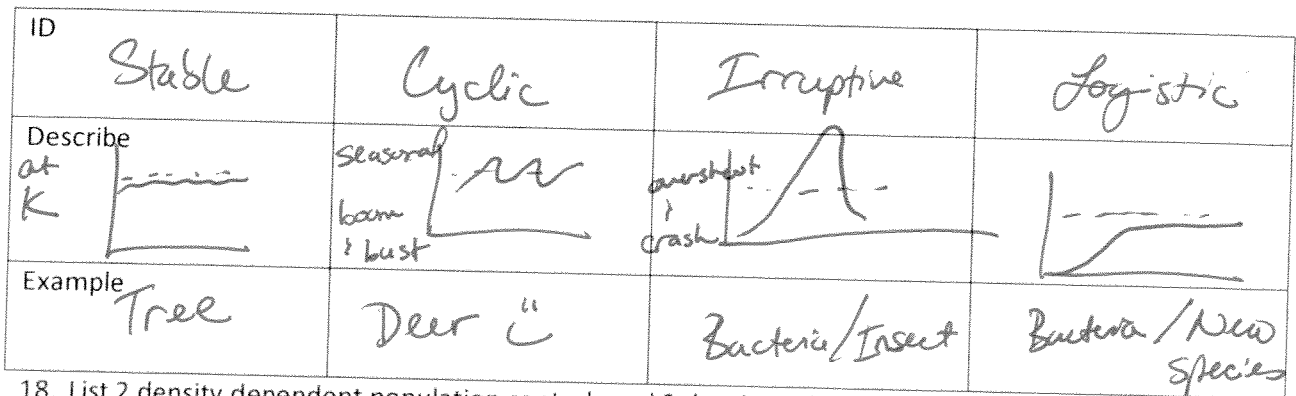 ID
Stable
Cyclic
Irruptive
Logistic
Describe
at
K
seasonal
boom
& bust
overshoot
&
crash
Example
Tree
Deer
Bacteria/Insect
Bacteria/New
species
18. List 2 density dependent population